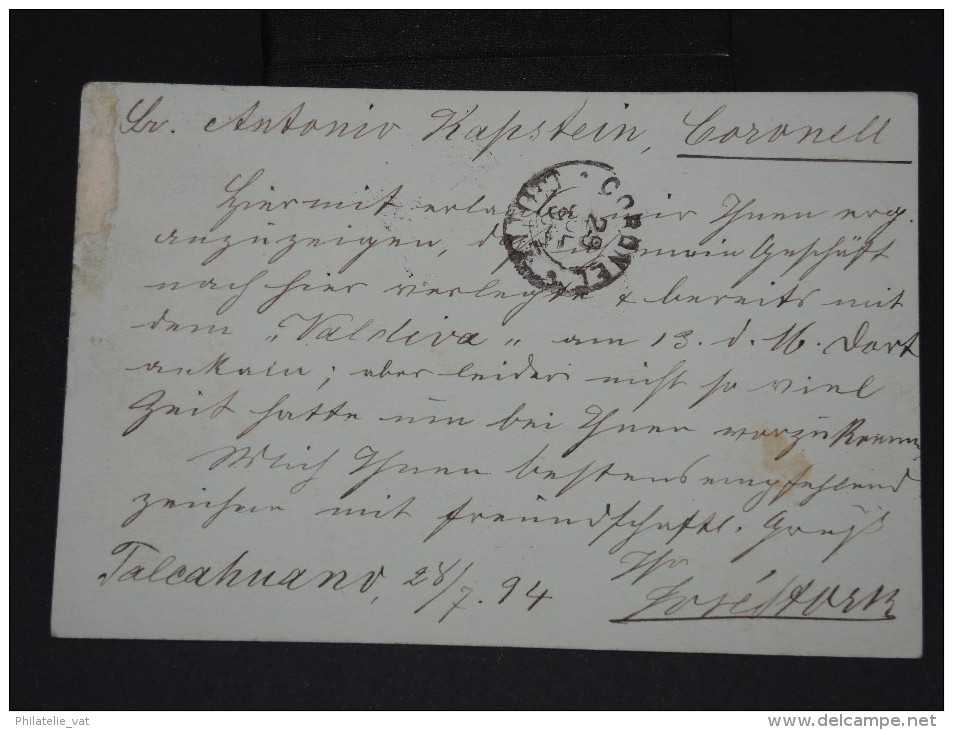 Sr. Antonio Kapstein, Coronell
Hiermit erlaube mir Ihnen erg.
anzuzeigen, mein Geschäft
nach hier verlegte & bereits mit
dem „Valdiva„ am 13. d. M. dort
ankam; aber leider nicht so viel
Zeit hatte um bei Ihnen vorzukommen
Mich Ihnen bestens empfehlend
zeichne mit freundschaftl. Gruß
Ihr
Talcahuano, 28/7.94
CORONEL
29
JUL
94
CHILE
Philatelie_vat
http://www.delcampe.net